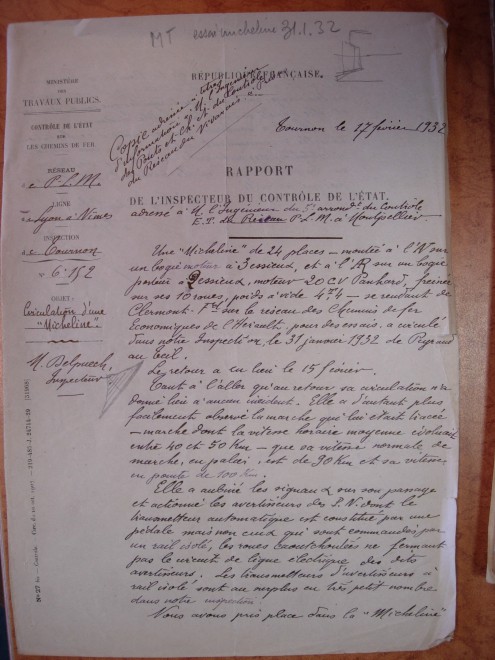 MT essai micheline 31.1.32
MINISTÈRE
DES
TRAVAUX PUBLICS.
CONTRÔLE DE L'ÉTAT
SUR
LES CHEMINS DE FER.
RÉSEAU
P.L.M.
LIGNE
Lyon à Nîmes
INSPECTION
de Tournon
N° 6.152
OBJET:
Circulation d'une
"Micheline".
M. Delpuech,
Ingénieur
RÉPUBLIQUE FRANÇAISE.
Copie adressée à titre
d'information à M. l'Ingénieur
des Ponts et Ch. du Contrôle
du Réseau des
Tournon le 17 février 1932
RAPPORT
DE L'INSPECTEUR DU CONTRÔLE DE L'ÉTAT.
adressé à M. l'Ingénieur du arrond. du Contrôle
E.T. du Réseau P.L.M. à Montpellier.
Une "Micheline" de 24 places - montée à l'AV sur
un bogie moteur à 3 essieux, et à l'AR sur un bogie
porteur à 2 essieux, moteur 20 CV Panhard, freinée
sur ses 10 roues, poids à vide 4T4 - se rendant de
Clermont-Fd sur le réseau des Chemins de fer
Économiques de l'Hérault pour des essais, a circulé
dans notre Inspection, le 31 janvier 1932 de Peyraud
au Teil.
Le retour a eu lieu le 15 février.
Tant à l'aller qu'au retour sa circulation n'a
donné lieu à aucun incident. Elle a d'autant plus
facilement observé la marche qui lui était tracée
- marche dont la vitesse horaire moyenne évoluait
entre 40 et 50 Km - que sa vitesse normale de
marche, en palier, est de 90 Km et sa vitesse
en pointe de 100 k.
Elle a aubiné les signaux sur son passage
et actionné les avertisseurs des P.N. dont le
transmetteur automatique est constitué par une
pédale mais non ceux qui sont commandés par
un rail isolé, les roues caoutchoutées ne fermant
pas le circuit de ligne électrique des dits
avertisseurs. Les transmetteurs d'avertisseurs à
rail isolé sont au surplus en très petit nombre
dans notre inspection.
Nous avons pris place dans la "Micheline"